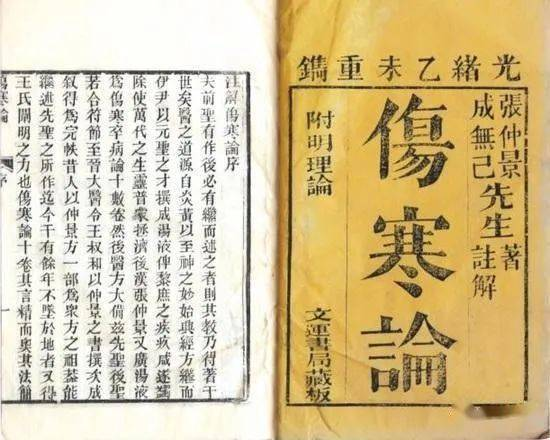 光緒乙未重鐫
張仲景
成無己
先生
著
註解
傷寒論
附明理論
文運書局藏板
注解傷寒論序
夫前聖有作後必有繼而述之者則其教乃得著于
世矣醫之道源自炎黃以至神之妙始興經方繼而
伊尹以元聖之才撰成湯液俾黎庶之疾疚咸遂蠲
除使萬代之生靈普蒙拯濟後漢張仲景又廣湯液
爲傷寒卒病論十數卷然後醫方大備茲先聖後聖
若合符節至晉太醫令王叔和以仲景之書撰次成
敘得爲完帙昔人以仲景方一部爲衆方之祖蓋能
繼述先聖之所作迄今千有餘年不墜於地者又得
王氏闡明之力也傷寒論十卷其言精而奧其法簡
傷寒論 序 一